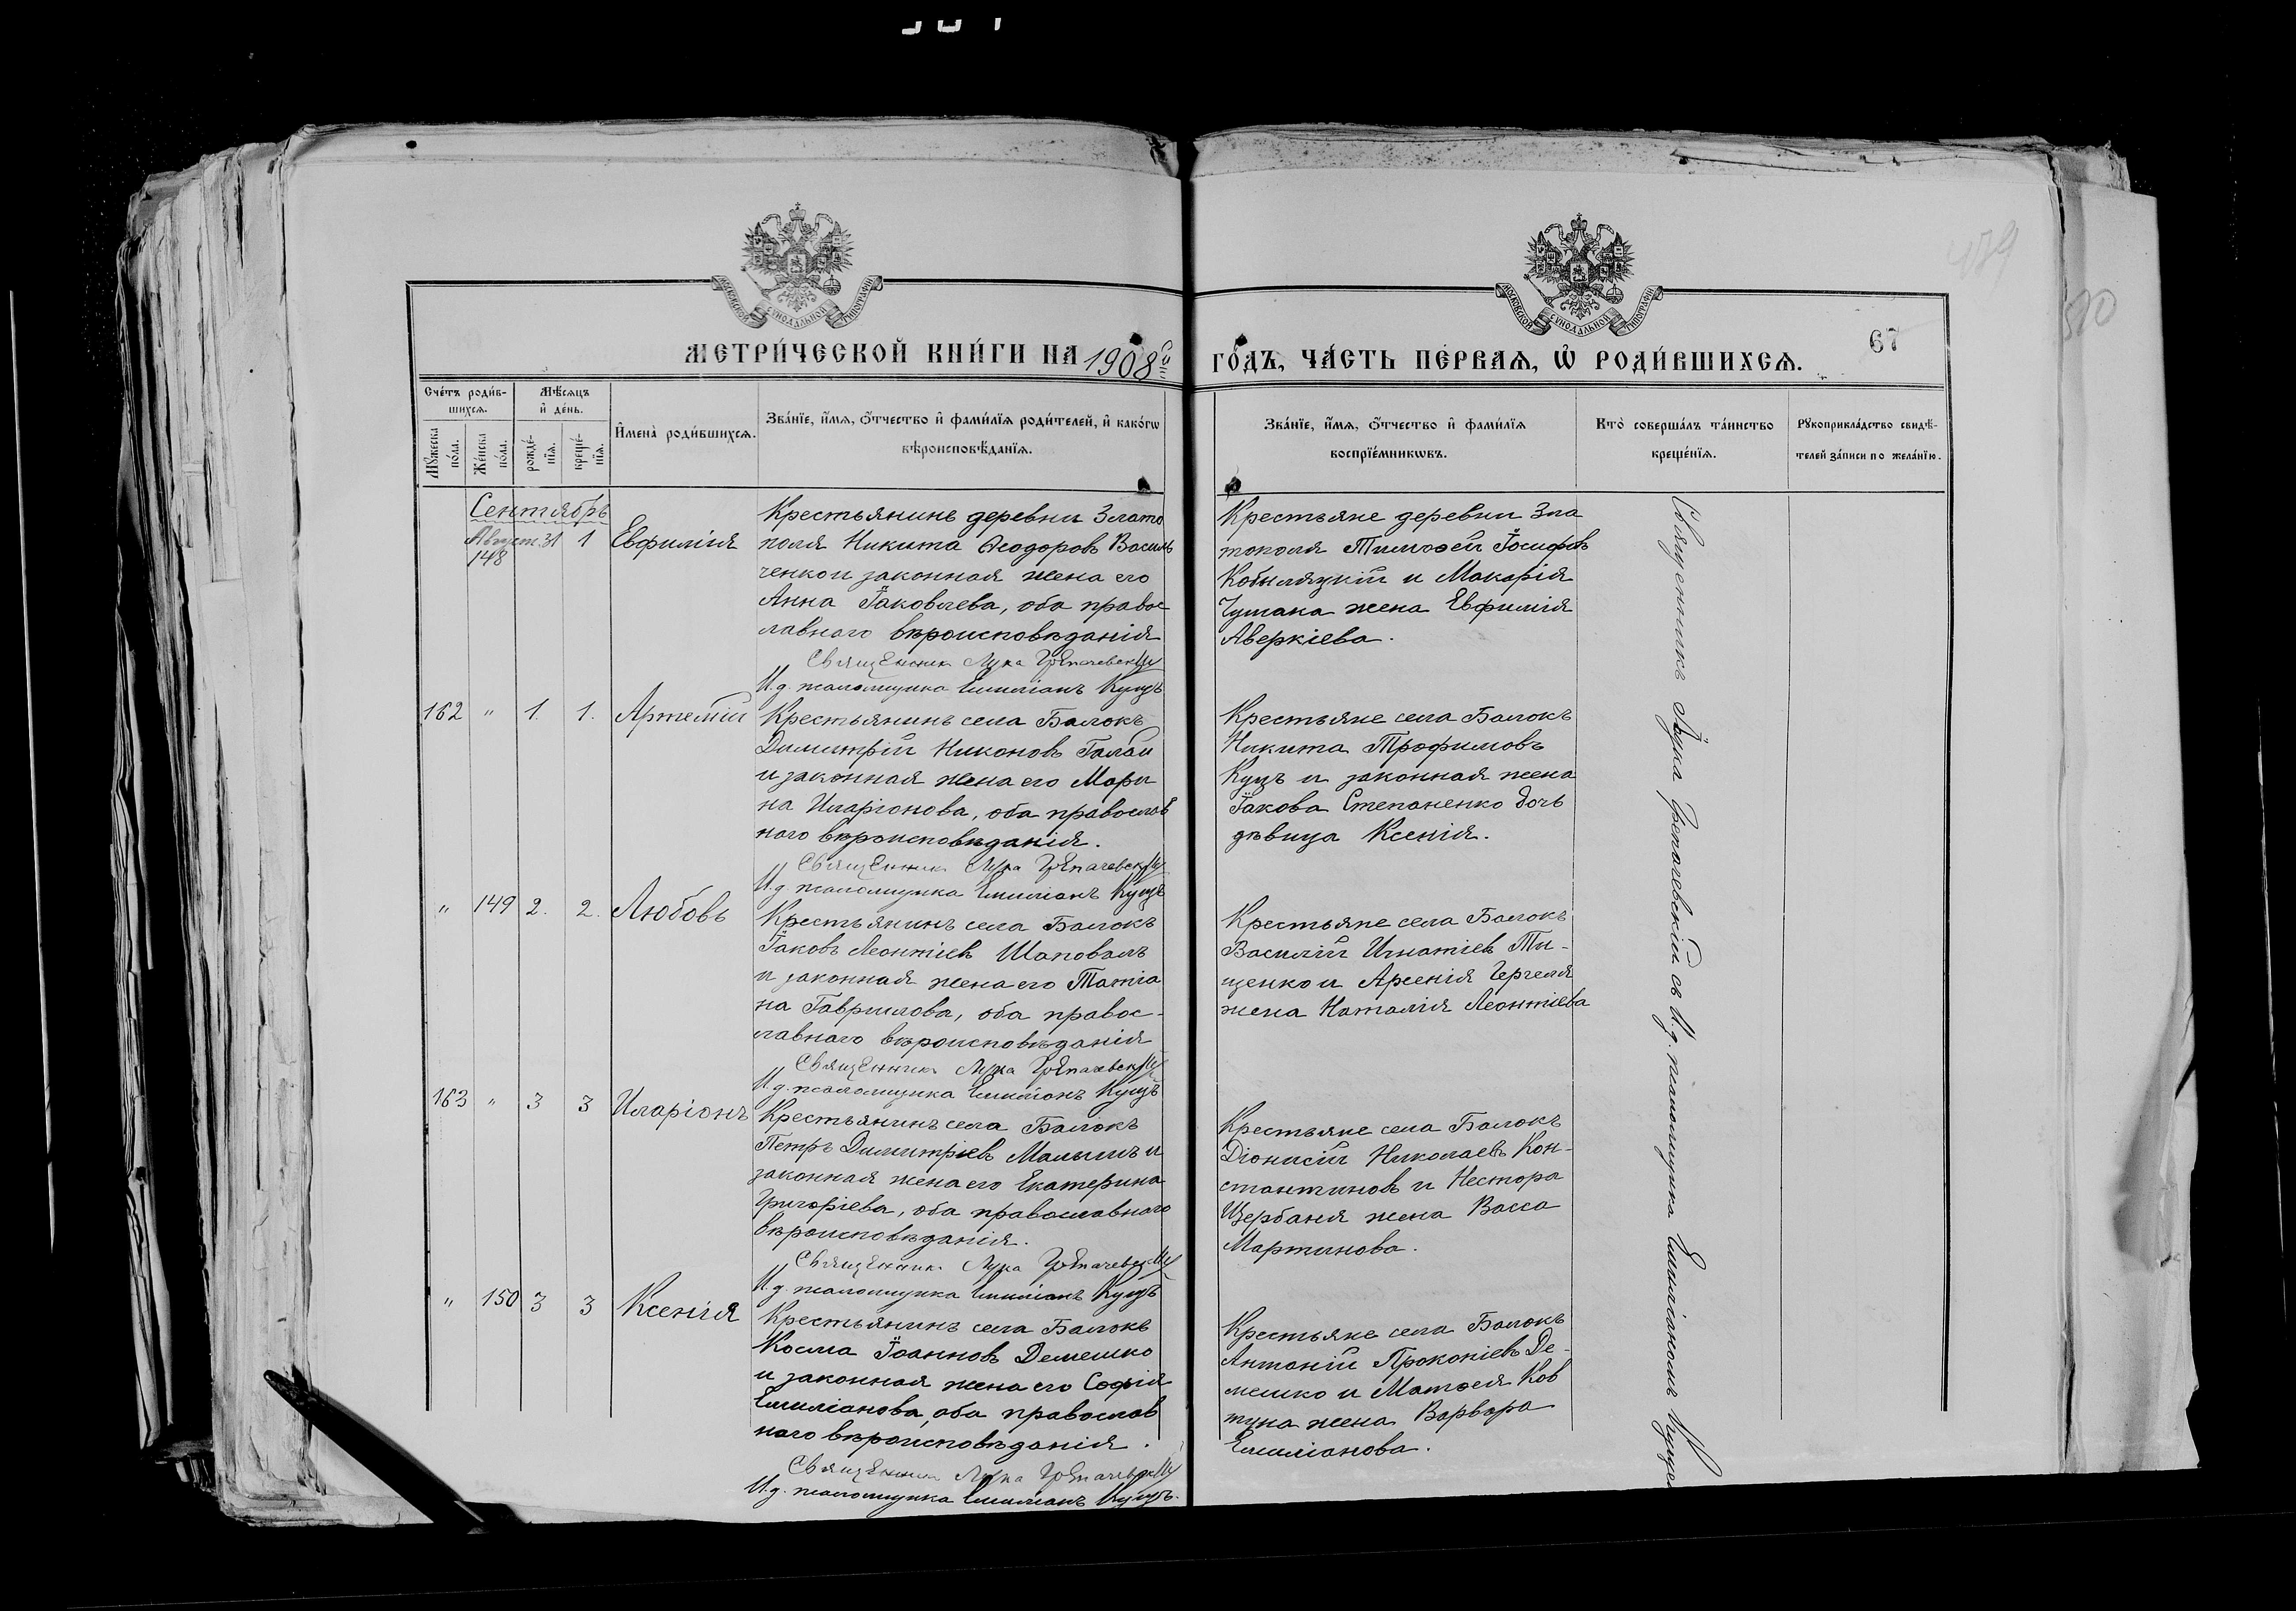 МЕТРИ́ЧЕСКОЙ КНИ́ГИ НА 1908й
ГО́ДЪ, ЧА́СТЬ ПЕ́РВАЯ, Ѡ РОДИ́ВШИХСЯ.
67
Сче́тъ роди́в-
шихся.
Мѣ́сяцъ
и҆ де́нь.
Мꙋ́жеска
по́ла.
Же́нска
по́ла.
рожде́-
нїя.
креще́-
нїя.
И҆мена̀ роди́вшихся.
Зва́нїе, и҆́мя, ѻ҆́тчество и҆ фами́лїя роди́телей, и҆ како́гѡ
вѣроисповѣ́данїя.
Зва́нїе, и҆́мя, ѻ҆́тчество и҆ фами́лїя
воспрїе́мникѡвъ.
Кто̀ соверша́лъ та́инство
креще́нїя.
Рꙋкоприкла́дство свидѣ́-
телей за́писи по жела́нїю.
Сентябрь
Август. 31 1
148
Евфимія
Крестьянинъ деревни Злато
поля Никита Ѳеодоровъ Василь
ченко и законная жена его
Анна Іаковлева, оба правос
лавного вѣроисповѣданія
Священник Лука Грепачевскій
И.д. псаломщика Емиліанъ Куцъ
Крестьяне деревни Зла
тополя Тимоѳей Іосифовъ
Кобыляцкій и Макарія
Чумака жена Евфимія
Аверкіева.
162 " 1. 1. Артемій
Крестьянинъ села Балокъ
Димитрій Никоновъ Галай
и законная жена его Мари
на Иларіонова, оба православ
ного вѣроисповѣданія.
Священник Лука Грепачевскій
И.д. псаломщика Емиліанъ Куцъ
Крестьяне села Балокъ
Никита Трофимовъ
Куцъ и законная жена
Іакова Степаненко дочь
дѣвица Ксенія.
" 149 2. 2. Любовь
Крестьянинъ села Балокъ
Іаковъ Леонтіевъ Шаповалъ
и законная жена его Татіа
на Гаврилова, оба правос-
лавного вѣроисповѣданія
Священник Лука Грепачевскій
И.д. псаломщика Емиліанъ Куцъ
Крестьяне села Балокъ
Василій Игнатіевъ Ти-
щенко и Арсенія Гергеля
жена Наталія Леонтіева
163 " 3 3 Иларіонъ
Крестьянинъ села Балокъ
Петръ Димитріевъ Малышъ и
законная жена его Екатерина
Григоріева, оба православного
вѣроисповѣданія.
Священник Лука Грепачевскій
И.д. псаломщика Емиліанъ Куцъ
Крестьяне села Балокъ
Діонисій Николаевъ Кон-
стантиновъ и Нестора
Щербаня жена Васса
Мартинова.
" 150 3 3 Ксенія
Крестьянинъ села Балокъ
Косма Іоанновъ Демешко
и законная жена его Софія
Емиліанова, оба православ
ного вѣроисповѣданія.
Священник Лука Грепачевскій
И.д. псаломщика Емиліанъ Куцъ.
Крестьяне села Балокъ
Антоній Прокопіевъ Де-
мешко и Матѳея Ков
туна жена Варвара
Емиліанова.
Священникъ Лука Грепачевскій съ И.д. псаломщика Емиліаномъ Куцем